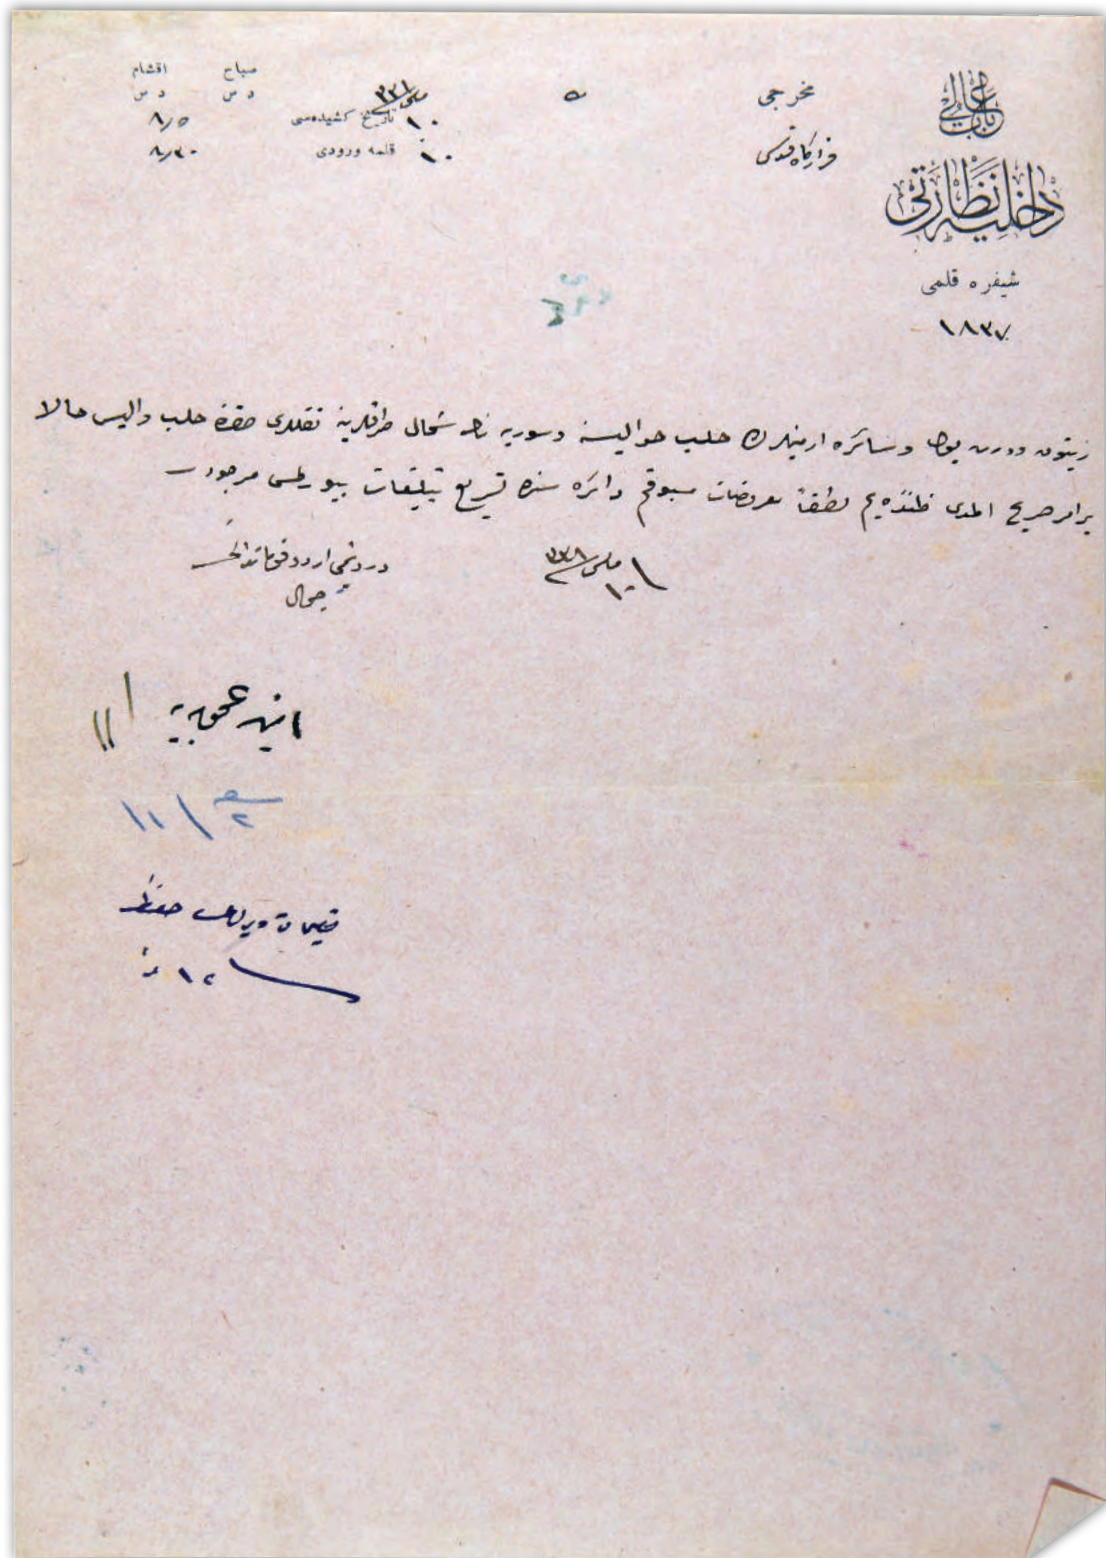 باب عالی
داخلیه نظارتی
شیفره قلمی
١٨٣٧
مخرجی
قرارگاه قدسی
مایس ٣٣١
١٠ تاریخ كشیده‌سی
١٠ قلمه ورودی
صباح
د س
اقشام
د س
٨/٥
٨/٣٠
زیتون ودورت یول وسائره ارمنیلرك حلب حوالیسنه وسوریه نك شمال طرفلرینه نقللری حقنده حلب والیسی حالا
بر امر صریح المدی ظننده‌یم لطفاً معروضات مسبوقم دائره سنده تسریع تبلیغات بیورلمسی مرجودر
١٠ مایس ٣٣١
دردنجی اردو قوماندانی
جمال
امنیت عمومیه
١١
حفظ